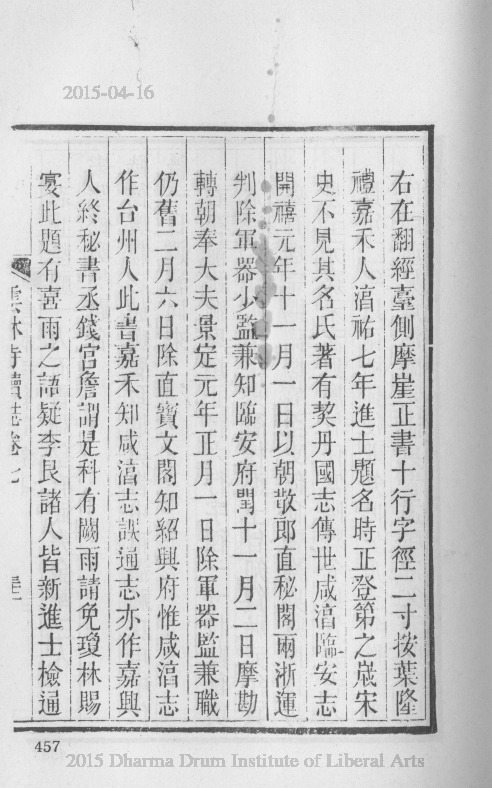 2015-04-16
右在翻經臺側摩崖正書十行字徑二寸按葉隆
禮嘉禾人淳祐七年進士題名時正登第之歲宋
史不見其名氏著有契丹國志傳世咸淳臨安志
開禧元年十一月一日以朝敬郎直秘閣兩浙運
判除軍器少監兼知臨安府閏十一月二日摩勘
轉朝奉大夫景定元年正月一日除軍器監兼職
仍舊二月六日除直寶文閣知紹興府惟咸淳志
作台州人此書嘉禾知咸淳志誤通志亦作嘉興
人終秘書丞錢宫詹謂是科有闕雨請免瓊林賜
宴此題有喜雨之語疑李艮諸人皆新進士檢通
雲林寺續志卷七
457
2015 Dharma Drum Institute of Liberal Arts